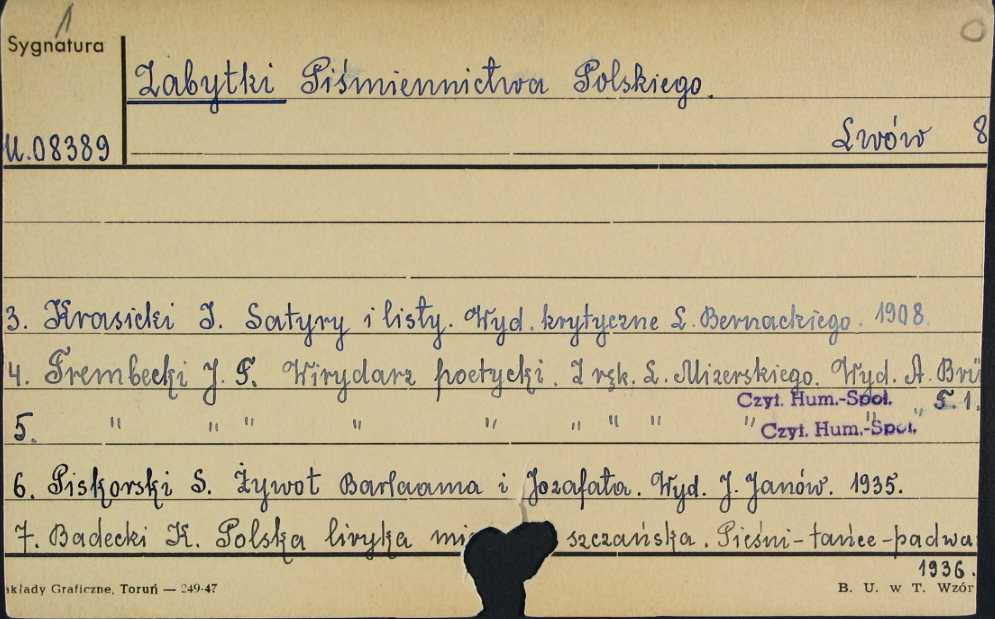 1
Sygnatura
Zabytki Piśmiennictwa Polskiego.
U.08389
Lwów 8
3. Krasicki I. Satyry i listy. Wyd. krytyczne L. Bernackiego. 1908.
4. Trembecki J. T. Wirydarz poetycki. Z ręk. L. Mizerskiego. Wyd. A. Brü
Czyt. Hum.-Społ. T. 1.
5. " " " " " " " " " " "
Czyt. Hum.-Społ.
6. Piskorski S. Żywot Barlaama i Jozafata. Wyd. J. Janów. 1935.
7. Badecki K. Polska liryka mie szczańska. Pieśni-tańce-padwa
1936.
akłady Graficzne, Toruń — 249-47
B. U. w T. Wzór